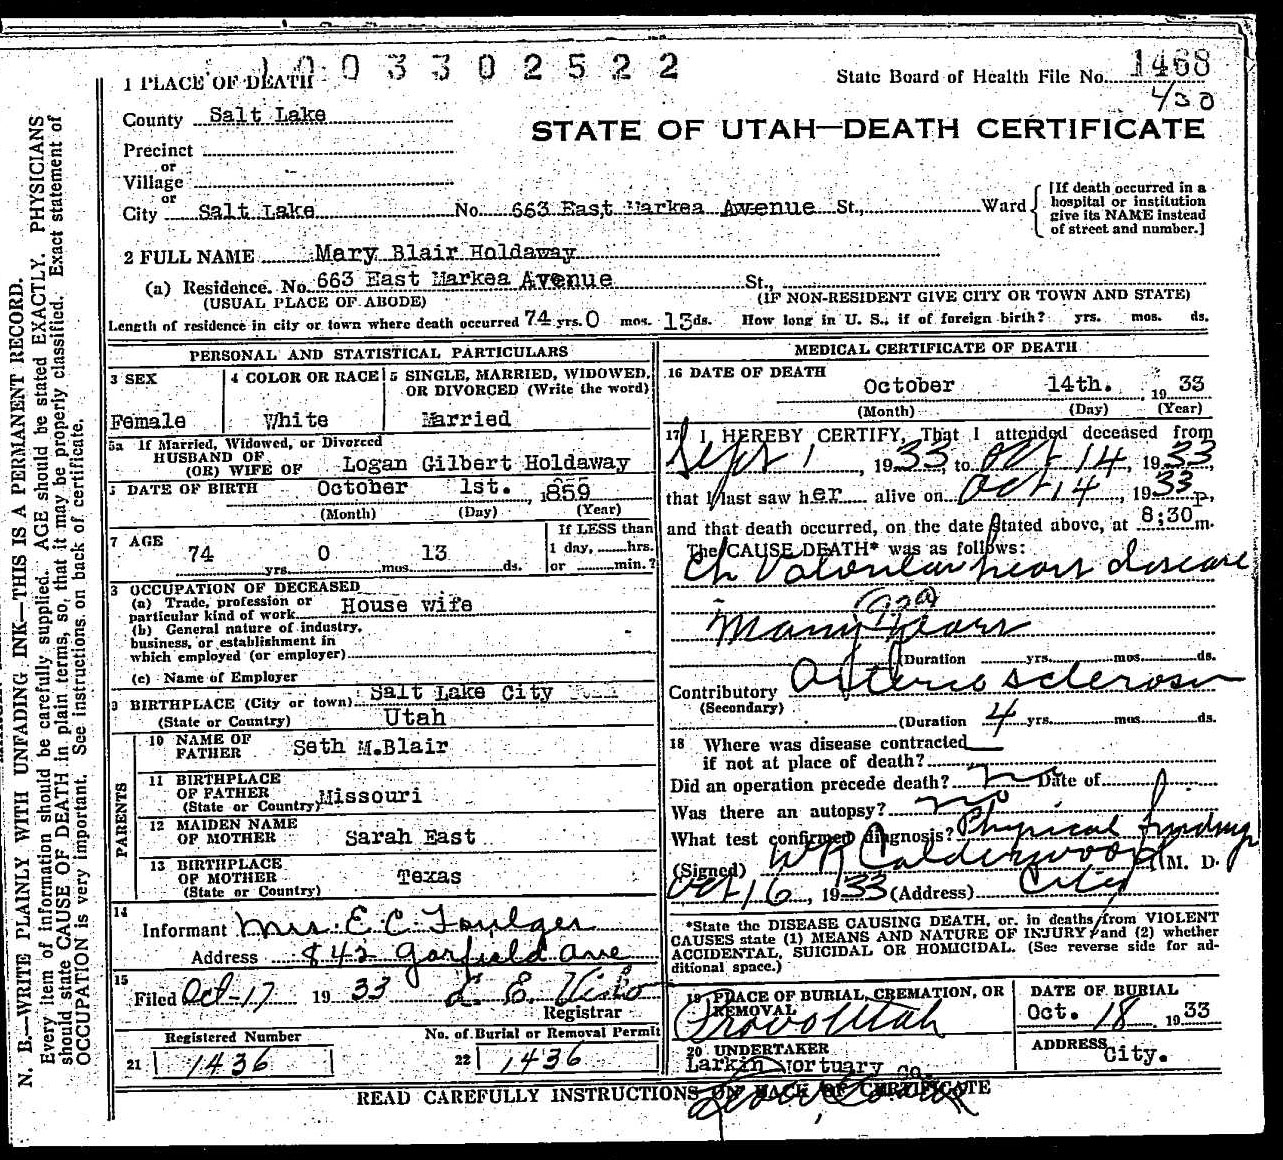 1003302522
State Board of Health File No. 1468
430
1 PLACE OF DEATH
County Salt Lake
STATE OF UTAH—DEATH CERTIFICATE
Precinct
or
Village
or
City Salt Lake No. 663 East Markea Avenue St., Ward
[If death occurred in a
hospital or institution
give its NAME instead
of street and number.]
2 FULL NAME Mary Blair Holdaway
(a) Residence. No. 663 East Markea Avenue St.,
(USUAL PLACE OF ABODE) (IF NON-RESIDENT GIVE CITY OR TOWN AND STATE)
Length of residence in city or town where death occurred 74 yrs. 0 mos. 13 ds. How long in U. S., if of foreign birth? yrs. mos. ds.
PERSONAL AND STATISTICAL PARTICULARS
3 SEX
Female
4 COLOR OR RACE
White
5 SINGLE, MARRIED, WIDOWED,
OR DIVORCED (Write the word)
Married
5a If Married, Widowed, or Divorced
HUSBAND OF
(OR) WIFE OF Logan Gilbert Holdaway
DATE OF BIRTH October 1st. 1859
(Month) (Day) (Year)
7 AGE
74 yrs. 0 mos. 13 ds.
If LESS than
1 day, hrs.
or min.?
OCCUPATION OF DECEASED
(a) Trade, profession or
particular kind of work House wife
(b) General nature of industry,
business, or establishment in
which employed (or employer)
(c) Name of Employer
BIRTHPLACE (City or town) Salt Lake City
(State or Country) Utah
PARENTS
10 NAME OF
FATHER Seth M.Blair
11 BIRTHPLACE
OF FATHER
(State or Country) Missouri
12 MAIDEN NAME
OF MOTHER Sarah East
13 BIRTHPLACE
OF MOTHER
(State or Country) Texas
14
Informant Mrs. E. C. Foulger
Address 842 Garfield Ave
15
Filed Oct-17 1933
Registrar
Registered Number
21 1436
No. of Burial or Removal Permit
22 1436
MEDICAL CERTIFICATE OF DEATH
16 DATE OF DEATH
October 14th. 1933
(Month) (Day) (Year)
17 I HEREBY CERTIFY, That I attended deceased from
Sept 1, 1933, to Oct 14, 1933,
that I last saw her alive on Oct 14, 1933,
and that death occurred, on the date stated above, at 8:30 p m.
The CAUSE DEATH* was as follows:
Ch Valvular heart disease
92a
Many years
(Duration yrs. mos. ds.
Contributory Arterio sclerosis
(Secondary)
(Duration 4 yrs. mos. ds.
18 Where was disease contracted
if not at place of death?
Did an operation precede death? no Date of
Was there an autopsy? no
What test confirmed diagnosis? Physical findings
(Signed) W R Calderwood M. D.
Oct 16, 1933 (Address) City
*State the DISEASE CAUSING DEATH, or, in deaths from VIOLENT
CAUSES state (1) MEANS AND NATURE OF INJURY and (2) whether
ACCIDENTAL, SUICIDAL OR HOMICIDAL. (See reverse side for ad-
ditional space.)
19 PLACE OF BURIAL, CREMATION, OR
REMOVAL
Provo Utah
DATE OF BURIAL
Oct. 18 1933
20 UNDERTAKER
Larkin Mortuary Co.
ADDRESS
City.
READ CAREFULLY INSTRUCTIONS ON BACK OF CERTIFICATE
N. B.—WRITE PLAINLY WITH UNFADING INK—THIS IS A PERMANENT RECORD.
Every item of information should be carefully supplied. AGE should be stated EXACTLY. PHYSICIANS
should state CAUSE OF DEATH in plain terms, so that it may be properly classified. Exact statement of
OCCUPATION is very important. See instructions on back of certificate.